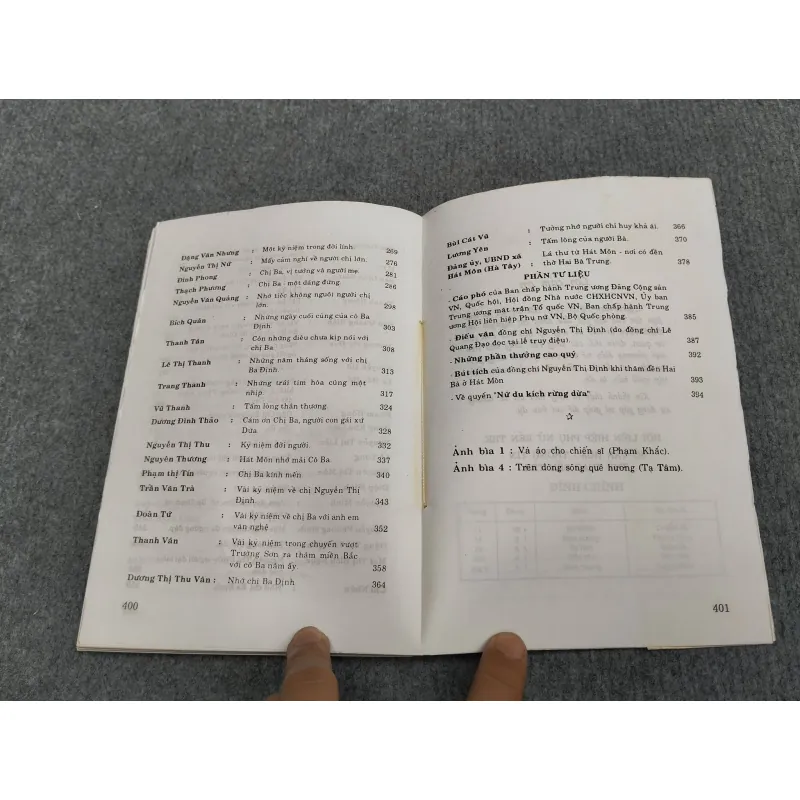 Đặng Văn Nhưng : Một kỷ niệm trong đời lính. 269
Nguyễn Thị Nử : Mấy cảm nghĩ về người chị lớn. 276
Đinh Phong : Chị Ba, vị tướng và người mẹ. 281
Thạch Phương : Chị Ba - một dáng đứng. 286
Nguyễn Văn Quảng : Nhớ tiếc không nguôi người chị
lớn. 298
Bích Quân : Những ngày cuối cùng của cô Ba
Định. 303
Thanh Tân : Còn những điều chưa kịp nói với
chị Ba 308
Lê Thị Thanh : Những năm tháng sống với chị
Ba Định. 313
Trang Thanh : Những trái tim hòa cùng một
nhịp. 317
Vũ Thanh : Tấm lòng thân thương. 324
Dương Đình Thảo : Cám ơn Chị Ba, người con gái xứ
Dừa. 328
Nguyễn Thị Thu : Kỷ niệm đời người. 332
Nguyên Thương : Hát Môn nhớ mãi Cô Ba. 337
Phạm thị Tín : Chị Ba kính mến. 340
Trần Văn Trà : Vài kỷ niệm về chị Nguyễn Thị
Định. 343
Đoàn Tứ : Vài kỷ niệm về chị Ba với anh em
văn nghệ 352
Thanh Vân : Vài kỷ niệm trong chuyến vượt
Trường Sơn ra thăm miền Bắc
với cô Ba năm ấy 358
Dương Thị Thu Vân : Nhớ chị Ba Định 364
400
Bùi Cát Vũ : Tưởng nhớ người chỉ huy khả ái. 366
Lương Yên : Tấm lòng của người Bà. 370
Đảng ủy, UBND xã : Lá thư từ Hát Môn - nơi có đền
Hát Môn (Hà Tây) thờ Hai Bà Trưng. 378
PHẦN TƯ LIỆU
- Cáo phó của Ban chấp hành Trung ương Đảng Cộng sản
VN, Quốc hội, Hội đồng Nhà nước CHXHCNVN, Ủy ban
Trung ương mặt trận Tổ quốc VN, Ban chấp hành Trung
ương Hội liên hiệp Phụ nữ VN, Bộ Quốc phòng. 385
- Điếu văn đồng chí Nguyễn Thị Định (do đồng chí Lê
Quang Đạo đọc tại lễ truy điệu). 387
- Những phần thưởng cao quý 392
- Bút tích của đồng chí Nguyễn Thị Định khi thăm đền Hai
Bà ở Hát Môn 393
- Về quyển "Nữ du kích rừng dừa" 394
Ảnh bìa 1 : Vá áo cho chiến sĩ (Phạm Khắc).
Ảnh bìa 4 : Trên dòng sông quê hương (Tạ Tâm).
401